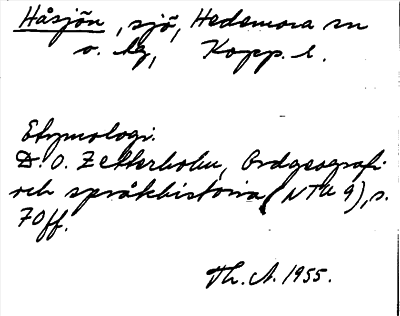 Håsjön, sjö, Hedemora sn
o. hg, Kopp. l.
Etymologi.
D. O. Zetterholm, Ordgeografi
och språkhistoria (NTU 9), s.
70 ff.
Th. A. 1955.